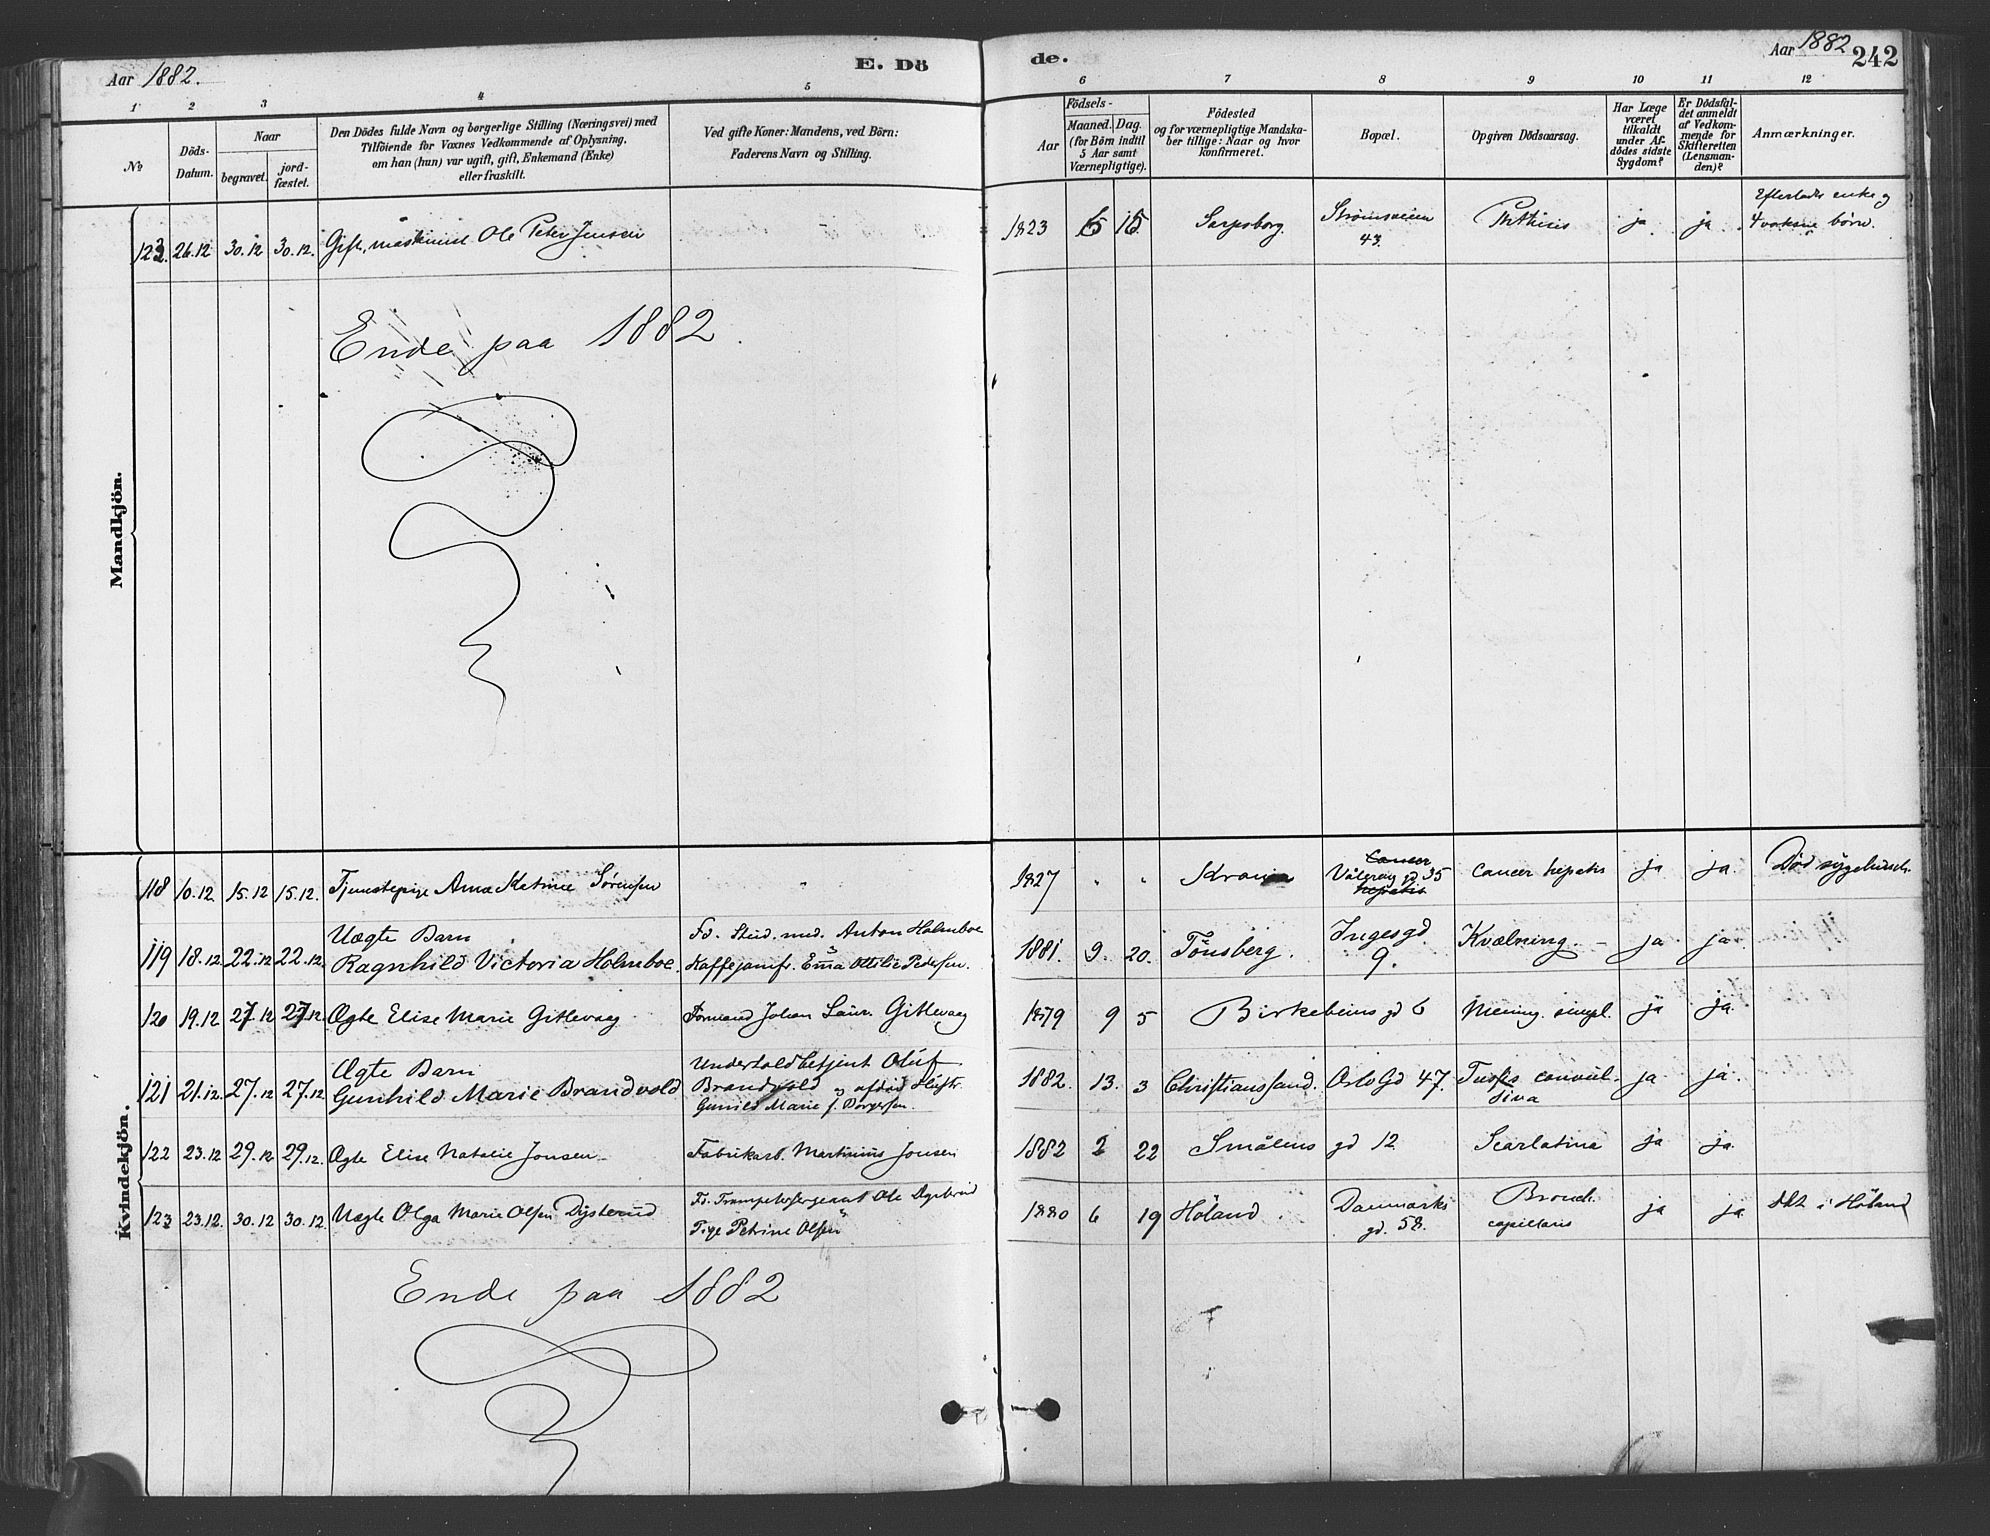 Aar 1882.
E. Dö
de.
Aar 1882
242
1 2 3 4 5 6 7 8 9 10 11 12
No
Döds-
Datum.
Naar
begravet.
jord-
fæstet.
Den Dödes fulde Navn og borgerlige Stilling (Næringsvei) med
Tilföiende for Voxnes Vedkommende af Oplysning,
om han (hun) var ugift, gift, Enkemand (Enke)
eller fraskilt.
Ved gifte Koner: Mandens, ved Börn:
Faderens Navn og Stilling.
Födsels-
Aar
Maaned.
Dag.
(for Börn indtil
5 Aar samt
Værnepligtige).
Födested
og for værnepligtige Mandska-
ber tillige: Naar og hvor
konfirmeret.
Bopæl.
Opgiven Dödsaarsag.
Har Læge
været
tilkaldt
under Af-
dödes sidste
Sygdom?
Er Dödsfal-
det anmeldt
af Vedkom-
mende for
Skifteretten
(Lensman-
den)?
Anmærkninger.
Mandkjön.
122. 26.12 30.12 30.12. Gift, maskinist Ole Peter Jensen 1823 5 15 Sarpsborg. Strömsveien
43. Phthisis ja ja Efterlader enke og
4 voksne børn.
Ende paa 1882.
Kvindekjön.
118 10.12 15.12 15.12. Tjenestepige Anna Katrine Sørensen " 1827 " " Krania Cancer
Vålereng gd 35
hepatis cancer hepatis ja ja. Död sygehuset.
119 18.12 22.12 22.12. Uægte Barn
Ragnhild Victoria Holmboe. Fd. Stud. med. Anton Holmboe
Kaffejomfr. Emma Ottilie Pedersen. 1881. 9. 20. Tönsberg. Ingesgd.
9. Kvælning. ja ja.
120 19.12 27.12 27.12. Ægte Elise Marie Gitlevaag Formand Johan Laur. Gitlevaag 1879 9 5 Birkebeins gd 6 Mening. simpl. ja ja.
121 21.12. 27.12 27.12 Ægte Barn
Gunhild Marie Brandvold Undertoldbetjent Oluf
Brandvold og afdöd Hustr.
Gunild Marie f. Börgersen. 1882. 13. 3 Christianssand. Oslo Gd 47. Tussis convul-
siva ja ja.
122 23.12 29.12 29.12. Ægte Elise Natalie Jonsen Fabrikarb. Martinius Jonsen 1882 2 22 Smålens gd 12 Scarlatina ja ja.
123 23.12. 30.12 30.12. Uægte Olga Marie Olsen Dysterud Fd. Trompetersergeant Ole Dysterud
Pige Petrine Olsen 1880 6 19 Höland. Danmarks
gd. 58. Bronch.
capillaris ja ja. Dbt i Höland
Ende paa 1882